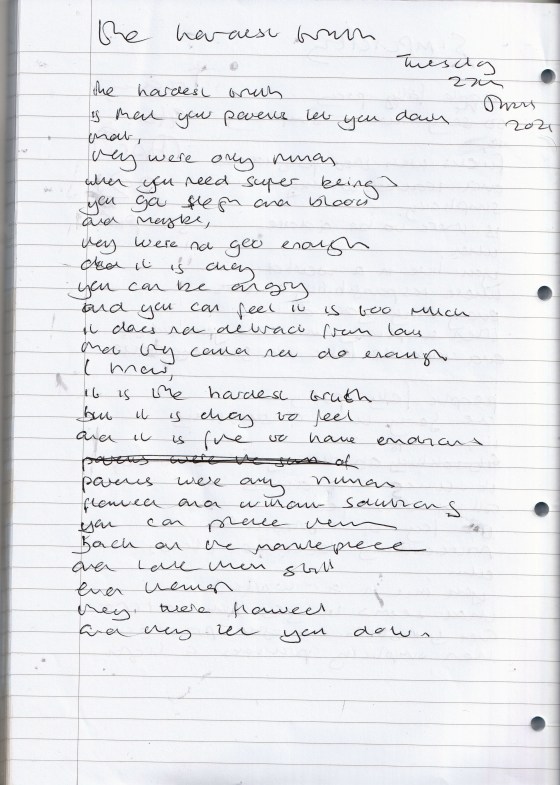 the hardest truth
Tuesday
27th
2021
the hardest truth
is that your parents let you down
that,
they were only human
when you need super beings
you got flesh and blood
and maybe,
they were not enough
and it is okay
you can be angry
and you can feel it is too much
it does not detract from love
that they could not do enough
I know,
it is the hardest truth
but it is okay to feel
and it is fine to have emotions
parents were the sum of
parents were only human
flawed and without solutions
you can place them
back on the mantlepiece
and love them still
even though
they were flawed
and they let you down